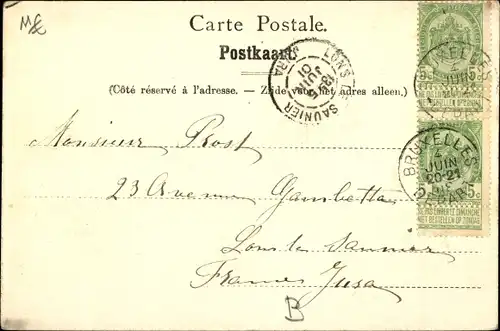 M€
Carte Postale.
Postkaart.
(Côté réservé à l'adresse. — Zijde voor het adres alleen.)
LONS SAUNIER
JURA
JUIN
01
5c 5c
BRUXELLES
JUIN
20-21
DEPART
5c 5c
NE PAS LIVRER LE DIMANCHE
NIET BESTELLEN OP ZONDAG
Monsieur Prost
23 Avenue Gambetta
Lons le Saunier
France Jura
B